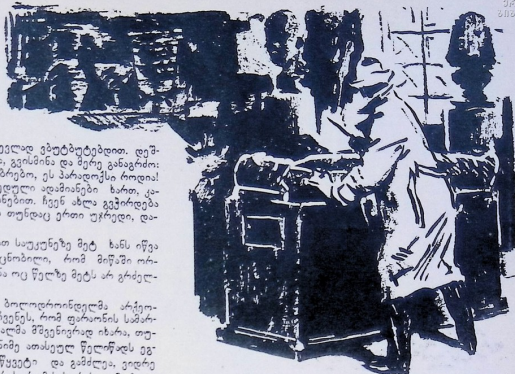 ევლად ვბუტბუტებდით. დეშ-
, გვისმინა და მერე განაგრძო:
ბრებო, ეს პარადოქსი როდია!
ედული ადამიანები ხართ, კა-
ნებით. ჩვენ ახლა გვჭირდება
თუნდაც ერთი უჯრედი, და-
თ საუკუნეზე მეტ ხანს იწვა
ცნობილი, რომ მიწაში ორ-
ნა ოც წელზე მეტს არ გრძელ-
ბოლოდროინდელმა არქეო-
რვენეს, რომ ფარაონის სამარ-
ალმა მშვენივრად იხარა, თუ-
ნიმე ათასეულ წელიწადს ეგ-
წყვეტი და გამძლეა, ვიდრე